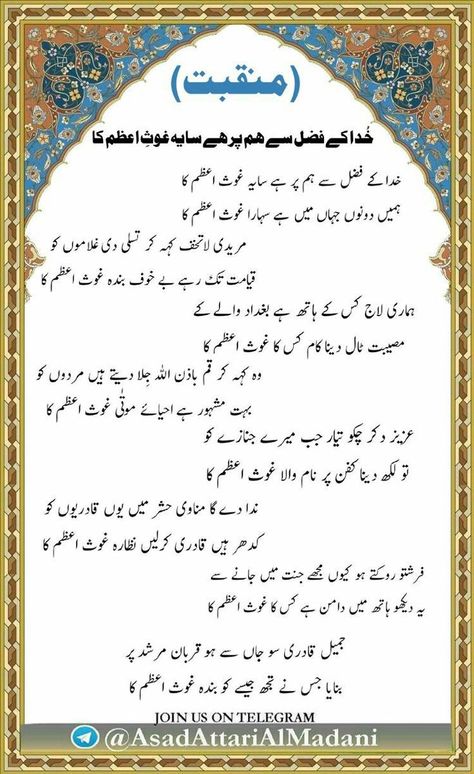 (منقبت)
خُدا کے فضل سے ہم پر ہے سایہ غوثِ اعظم کا
خدا کے فضل سے ہم پر ہے سایہ غوث اعظم کا
ہمیں دونوں جہاں میں ہے سہارا غوث اعظم کا
مریدی لاتخف کہہ کر تسلی دی غلاموں کو
قیامت تک رہے بے خوف بندہ غوث اعظم کا
ہماری لاج کس کے ہاتھ ہے بغداد والے کے
مصیبت ٹال دینا کام کس کا غوث اعظم کا
وہ کہہ کر قم باذن اللہ جِلا دیتے ہیں مردوں کو
بہت مشہور ہے احیائے موتٰی غوث اعظم کا
عزیز دکر چکو تیار جب میرے جنازے کو
تو لکھ دینا کفن پر نام والا غوث اعظم کا
ندا دے گا مناوی حشر میں یوں قادریوں کو
کدھر ہیں قادری کرلیں نظارہ غوث اعظم کا
فرشتو روکتے ہو کیوں مجھے جنت میں جانے سے
یہ دیکھو ہاتھ میں دامن ہے کس کا غوث اعظم کا
جمیل قادری سو جاں سے ہو قربان مرشد پر
بنایا جس نے تجھ جیسے کو بندہ غوث اعظم کا
JOIN US ON TELEGRAM
@AsadAttariAlMadani